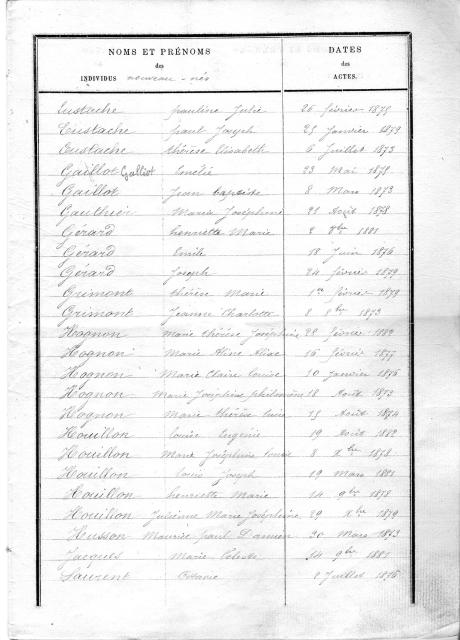 NOMS ET PRÉNOMS
des
INDIVIDUS nouveau-nés
DATES
des
ACTES.
Eustache pauline Julie 26 février 1875
Eustache paul Joseph 25 Janvier 1879
Eustache thérèse Elisabeth 6 Juillet 1873
Gaillot Galliot Emélie 23 Mai 1878
Gaillot Jean baptiste 8 Mars 1873
Gauthier Maria Joséphine 21 Août 1878
Gérard henriette Marie 2 1881
Gérard Emile 18 Juin 1876
Gérard Joseph 24 février 1879
Grimont thérèse Marie 1er février 1879
Grimont Jeanne Charlotte 8 8bre 1873
Hognon Marie thérèse Joséphine 28 février 1882
Hognon Marie Aline 16 février 1877
Hognon Marie Claire Louise 10 Janvier 1876
Hognon Marie Joséphine philomène 18 Août 1873
Hognon Marie thérèse 15 Août 1874
Houillon Louise Eugénie 19 Août 1882
Houillon Marie Joséphine Louise 8 Xbre 1878
Houillon Louis Joseph 19 Mars 1881
Houillon henriette Marie 14 9bre 1878
Houillon Julienne Marie Joséphine 29 Xbre 1879
Husson Maurice paul Damien 30 Mars 1873
Jacques Marie Céleste 14 9bre 1881
Laurent Octavie 2 Juillet 1876